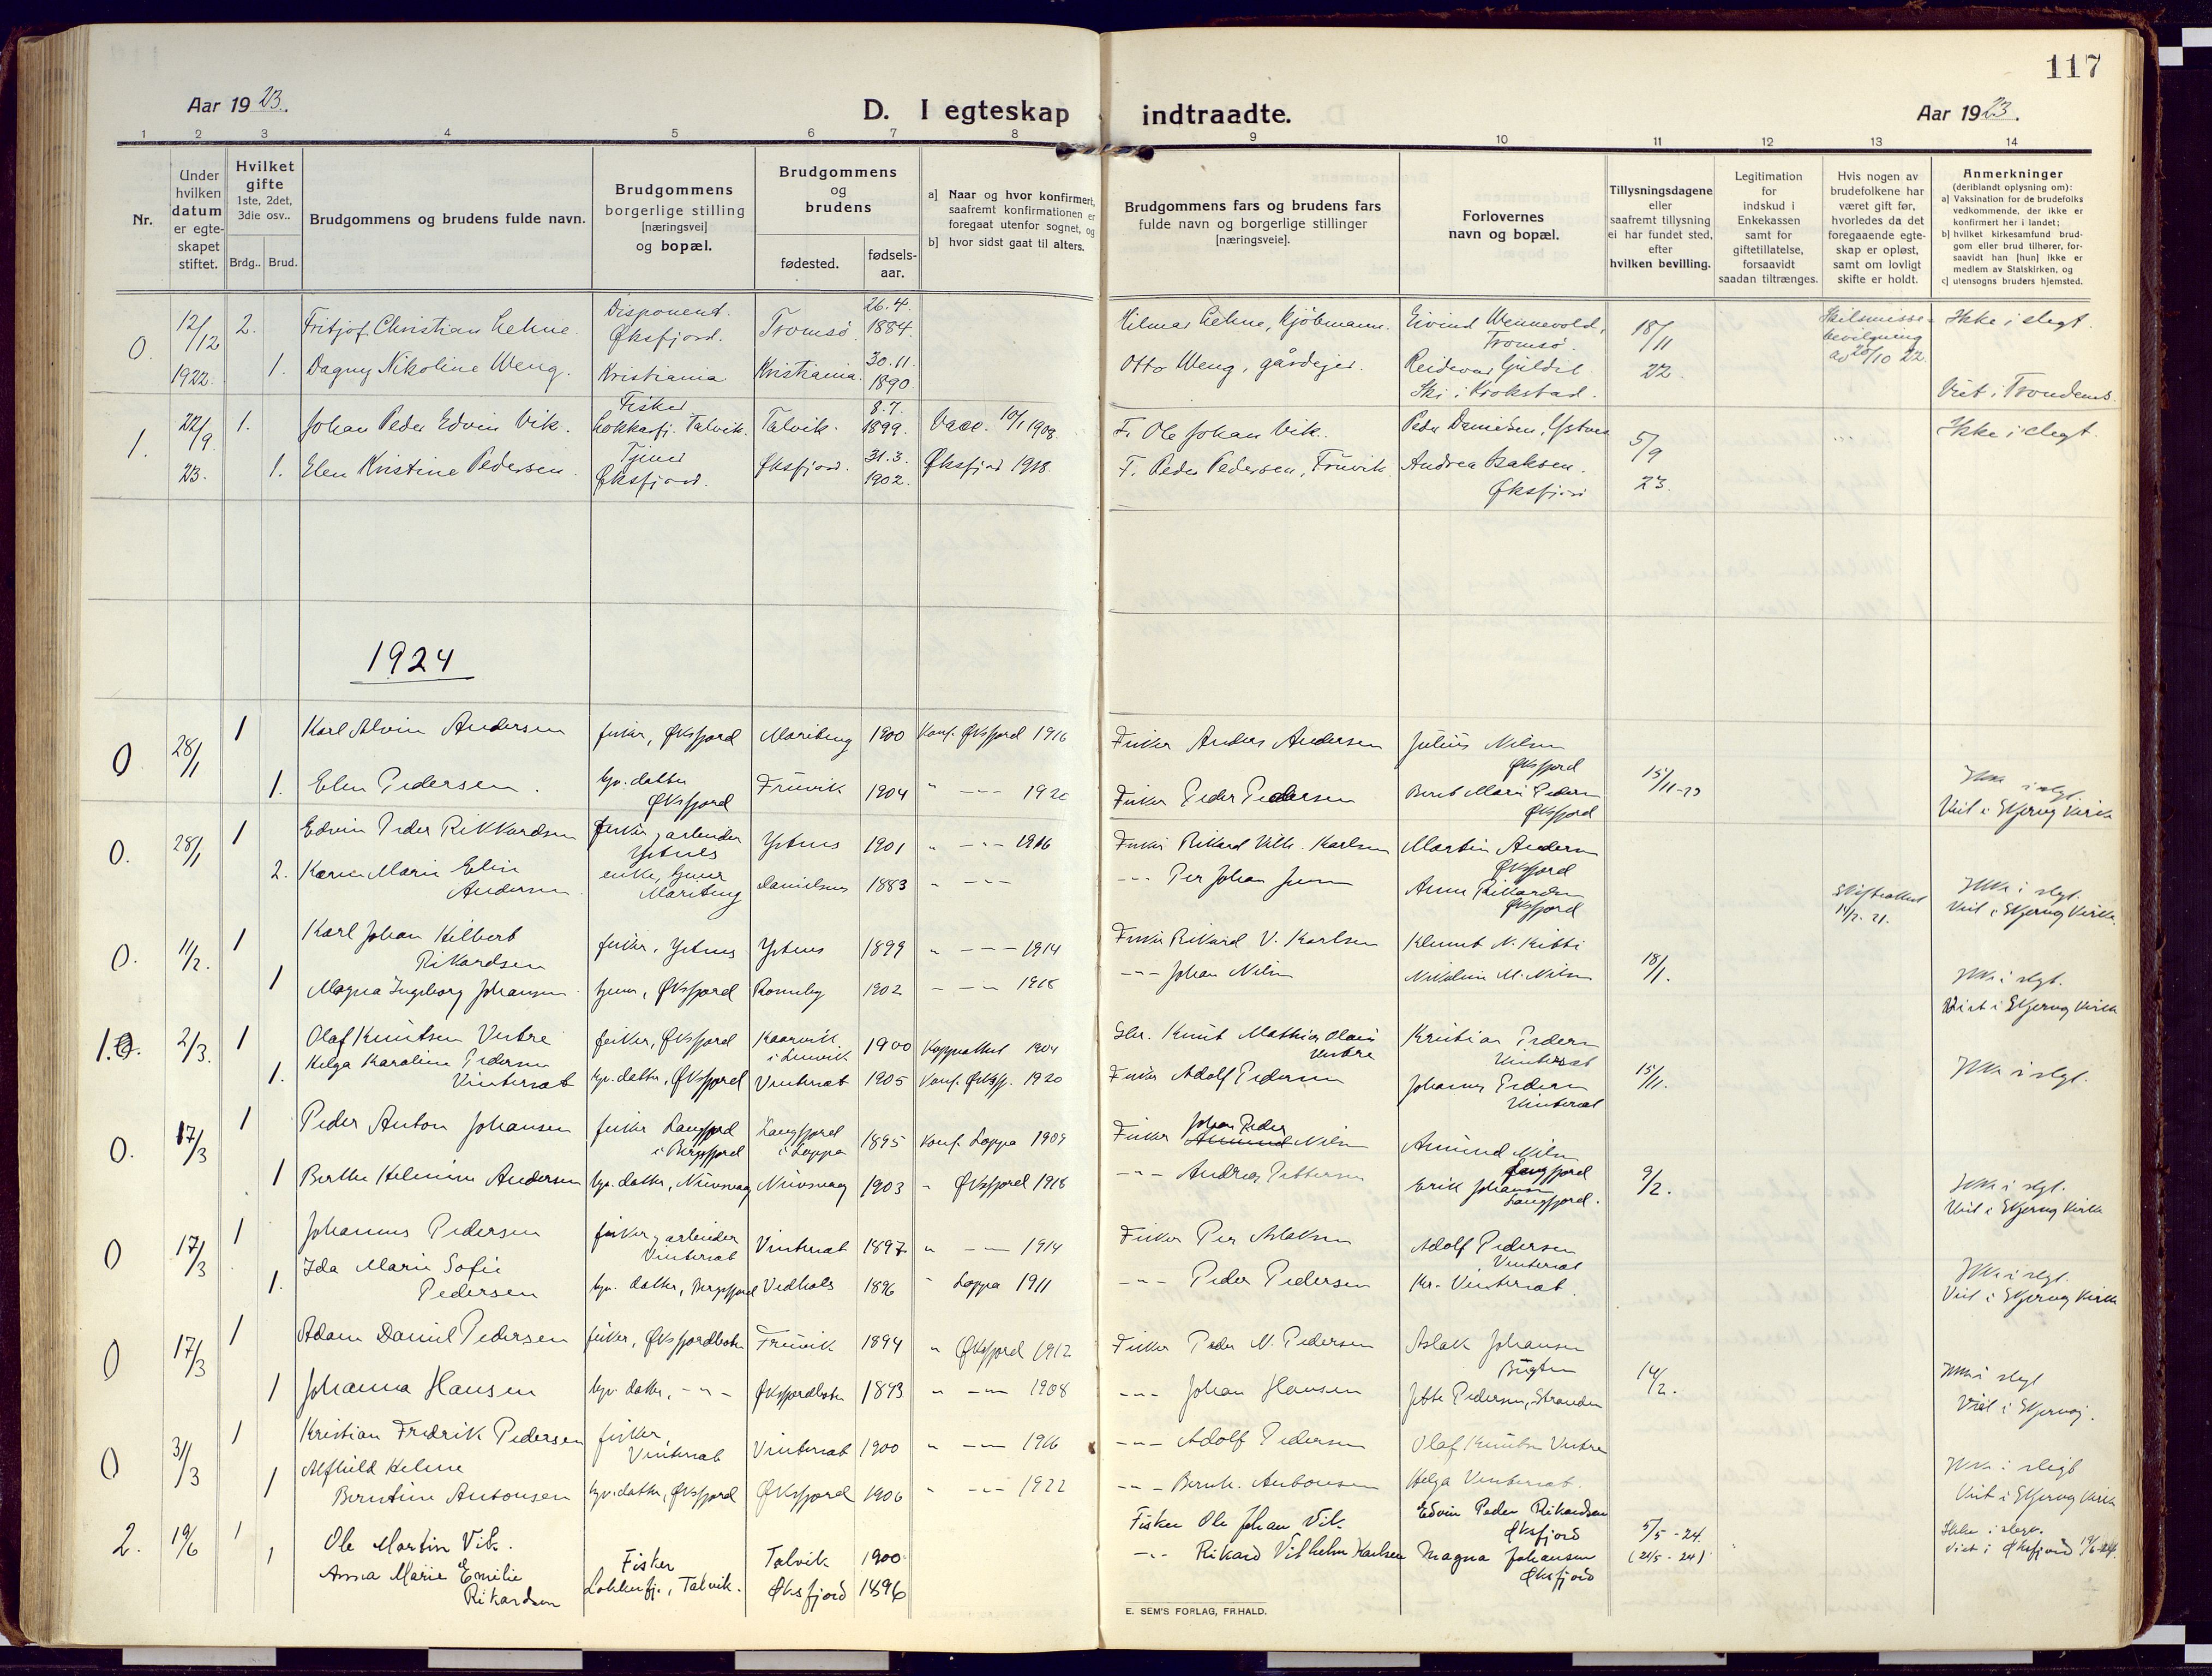 117
Aar 1923.
D. I egteskap indtraadte.
Aar 1923.
1 2 3 4 5 6 7 8 9 10 11 12 13 14
Nr.
Under hvilken datum er egte-skapet stiftet.
Hvilket gifte 1ste, 2det, 3die osv..
Brdg.. Brud.
Brudgommens og brudens fulde navn.
Brudgommens borgerlige stilling [næringsvei] og bopæl.
Brudgommens og brudens
fødested.
fødsels-aar.
a] Naar og hvor konfirmert, saafremt konfirmationen er foregaat utenfor sognet, og
b] hvor sidst gaat til alters.
Brudgommens fars og brudens fars fulde navn og borgerlige stillinger [næringsveie].
Forlovernes navn og bopæl.
Tillysningsdagene eller saafremt tillysning ei har fundet sted, efter hvilken bevilling.
Legitimation for indskud i Enkekassen samt for giftetillatelse, forsaavidt saadan tiltrænges.
Hvis nogen av brudefolkene har været gift før, hvorledes da det foregaaende egte-skap er opløst, samt om lovligt skifte er holdt.
Anmerkninger
(deriblandt oplysning om):
a] Vaksination for de brudefolks vedkommende, der ikke er konfirmert her i landet;
b] hvilket kirkesamfund brud-gom eller brud tilhører, for-saavidt han [hun] ikke er medlem av Statskirken, og
c] utensogns bruders hjemsted.
0. 12/12 1922. 2. Fritjof Christian Lehne. Disponent. Øksfjord. Tromsø. 26.4. 1884 Hilmar Lehne, kjøbmann. Eivind Wennevold, Tromsø. 18/11 Skilsmisse-bevilgning av 20/10 22 Ikke i slegt.
1. Dagny Nikoline Weng. Kristiania Kristiania. 30.11. 1890. Otto Weng, gårdejer. Reidar Ski i Krokstad. 22. Viet i Trondenes.
1. 22/9. 23. 1. Johan Peder Edvin Vik. Fisker Talvik. Talvik. 8.7. 1899. Vacc. 10/1 1908. F. Ole Johan Vik. Peder Danielsen, 5/9 Ikke i slegt.
1. Elen Kristine Pedersen. Tjener Øksfjord. Øksfjord. 31.3. 1902. Øksfjord 1918. F. Peder Pedersen, Fruvik Andrea Isaksen. Øksfjord 23.
1924
0 28/1 1 Karl Alvin Andersen fisker, Øksfjord Mariteng 1900 Konf. Øksfjord 1916 Fisker Anders Andersen Julius Nilsen Øksfjord
1. Elen Pedersen. hjv. datter Øksfjord Fruvik 1904 " --- 1920 Fisker Peder Pedersen Berit Mari Pedersen Øksfjord 15/11-23 Ikke i slegt. Viet i Skjervøy Kirke
0. 28/1 1 Edvin Peder Rikkardsen fisker, arbeider Ystnes Ystnes 1901 " --- 1916 Fisker Rikard Vilh. Karlsen Martin Andersen Øksfjord
2. Karen Marie Elin Andersen. enke, tjener Mariteng Danielsnes 1883 " --- --- Per Johan Anna Rikardsen Øksfjord Skifteattest Ikke i slegt. Viet i Skjervøy Kirke.
0. 11/2. 1 Karl Johan Hilbert Rikardsen fisker, Ystnes Ystnes 1899 " --- 1914 Fisker Rikard V. Karlsen Klemet N. Kitti 18/1.
1 Magna Ingeborg Johansen tjener, Øksfjord 1902 --- 1918 --- Johan Nilsen Nikoline M. Nilsen Ikke i slegt. Viet i Skjervøy Kirke
1. 2/3. 1 Olaf Knutsen Vestre fisker, Øksfjord 1900 Koppeattest 1904 Gbr. Knut Mathias Olai Vestre Kristian Pedersen Vinternat
1. Helga Karoline Pedersen Vinternat hjv. datter, Øksfjord Vinternat 1905 Konf. Øksfj. 1920 Fisker Adolf Pedersen Johannes Pedersen Vinternat 15/11. Ikke i slegt.
0. 17/3 1 Peder Anton Johansen fisker Langfjord i Bergsfjord Langfjord i Loppa 1895 Konf. Loppa 1909 Fisker Johan Peder Nilsen Amund Nilsen Langfjord
1 Berthe Helmine Andersen hjv. datter, Nuvsvaag Nuvsvaag 1903 " Øksfjord 1918 --- Andreas Pettersen Erik Johansen Langfjord. 9/2. Ikke i slegt. Viet i Skjervøy Kirke
0 17/3 1 Johannes Pedersen fisker, arbeider Vinternat Vinternat 1897 " --- 1914 Fisker Per Aslaksen Adolf Pedersen Vinternat
1. Ida Marie Sofie Pedersen hjv. datter, Bergsfjord Vedhols 1896 " Loppa 1911 --- Peder Pedersen Kr. Vinternat. Ikke i slegt. Viet i Skjervøy Kirke
0 17/3 1 Adam Daniel Pedersen fisker, Øksfjordbotn Fruvik 1894 " Øksfjord 1912 Fisker Peder N. Pedersen Aslak Johansen Bugten
1 Johanna Hansen hjv. datter, -"- Øksfjordbotn 1893 " --- 1908 --- Johan Hansen Pedersen, Stranden 14/2. Ikke i slegt Viet i Skjervøy.
0 31/3 1 Kristian Fredrik Pedersen fisker Vinternat Vinternat 1900 " --- 1916 --- Adolf Pedersen Olaf Knutsen Vestre
1 Alfhild Helene Berntine Antonsen hjv. datter, Øksfjord Øksfjord 1906 " --- 1922 --- Bernh. Antonsen Helga Vinternat. Ikke i slegt Viet i Skjervøy Kirke
2. 19/6 1 Ole Martin Vik. Fisker Talvik 1900 Fisker Ole Johan Vik Edvin Peder Rikardsen Øksfjord 5/5-24. Ikke i slegt. Viet i Øksfjord 19/6-24.
1 Anna Marie Emilie Rikardsen Talvik. Øksfjord 1896 --- Rikard Vilhelm Karlsen Magna Johansen Øksfjord (24/5-24)
E. SEM'S FORLAG, FR.HALD.